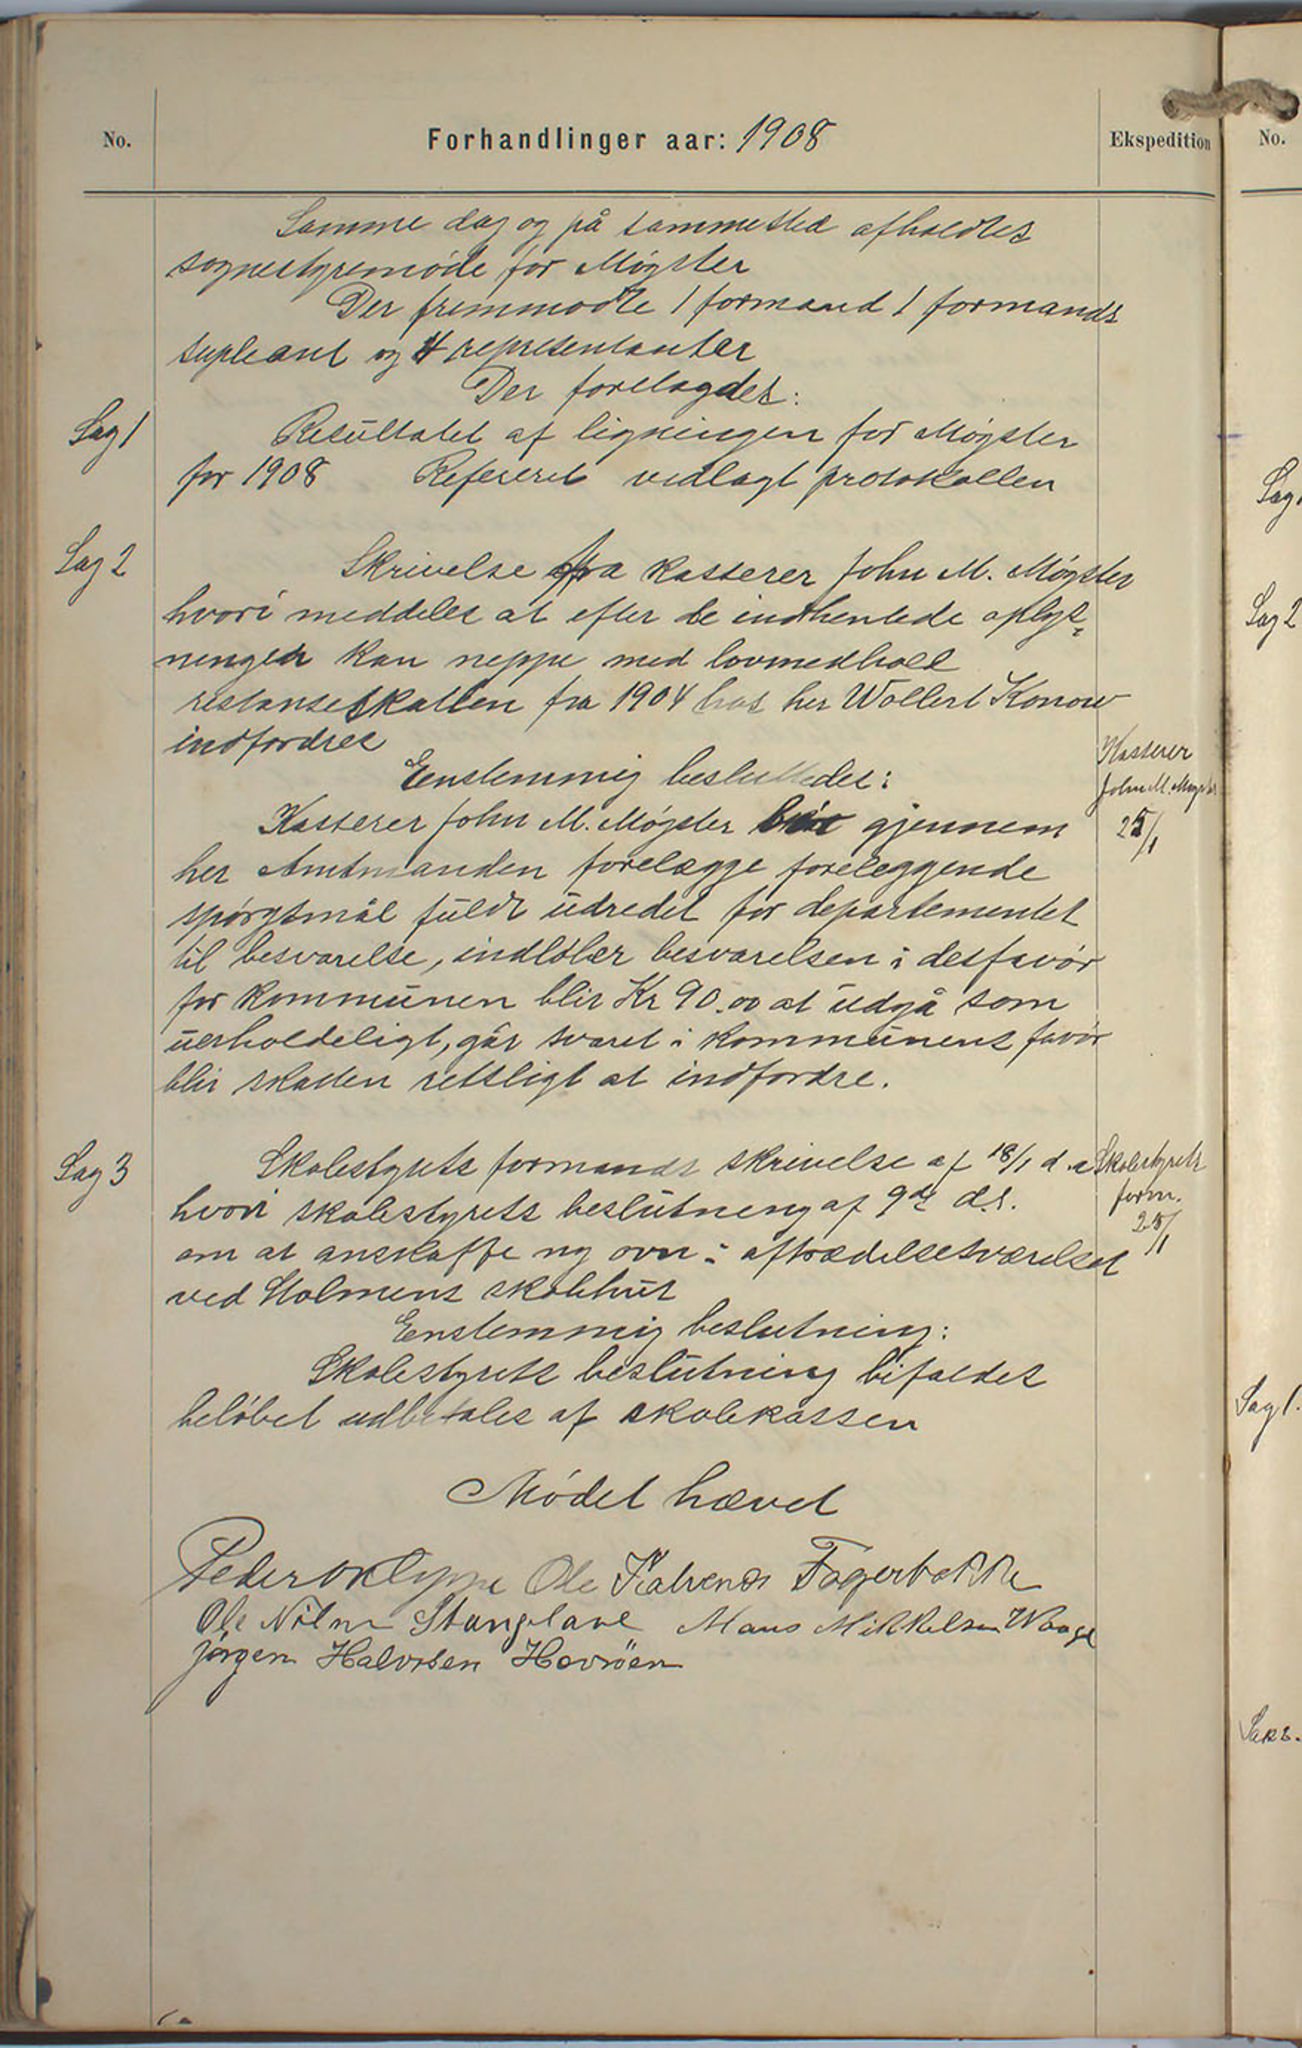 No. Forhandlinger aar: 1908 Ekspedition No.
Samme dag og på sammested afholdtes
sognestyremöde for Møgster
Der fremmödte 1 formand 1 formands
supleant og 4 representanter
Der forelagdes:
Sag 1 Resultatet af ligningen for Møgster
for 1908 Refereret vedlagt protokollen
Sag 2 Skrivelse fra kasserer John M. Møgster
hvori meddeles at efter de indhentede oplys-
ninger kan neppe med lovmedhold
restanseskatten fra 1904 hos her Wollert Konow
indfordres
Enstemmig besluttedes:
Kasserer John M. Møgster bör gjennem
her Amtmanden forelægge foreleggende
spörgsmål fuldt udredet for departementet
til besvarelse, indlöber besvarelsen i desfavör
for kommunen blir Kr 90.00 at udgå som
uerholdeligt, går svaret i kommunens favör
blir skatten retsligt at indfordre.
Kasserer
John M. Møgster
25/1
Sag 3 Skolestyrets formands skrivelse af 18/1 d.a
hvori skolestyrets beslutning af 9de d.s.
om at anskaffe ny ovn i aftrædelsesværelset
ved Stolmens skolehus
Enstemmig beslutning:
Skolestyrets beslutning bifaldes
belöbet udbetales af skolekassen
Skolestyrets
form.
25/1
Mödet hævet
Peder Klyppe Ole Halvends Fagerbakke
Ole Nilsen Stangeland Mans Mikkelsen Waage
Jörgen Halvorsen Hevröen
Sag 1
Sag 2
Sag 1.
Sak 2.